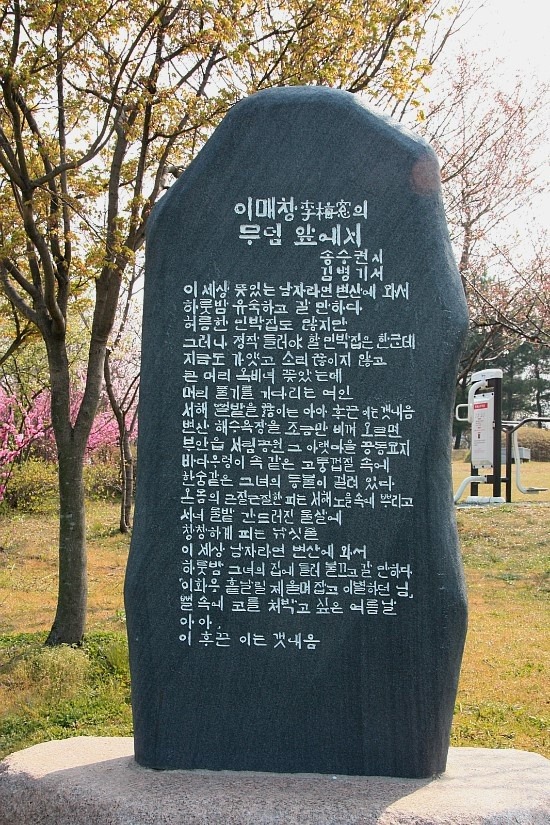 이매창李梅窓의
무덤 앞에서
송수권 시
김병기 서
이 세상 뜻있는 남자라면 변산에 와서
하룻밤 유숙하고 갈 만하다
허름한 민박집도 많지만
그러나 정작 들러야 할 민박집은 한군데
지금도 가얏고 소리 끊이지 않고
큰 머리 옥비녀 꽂았는데
머리 풀기를 기다리는 여인
서해 뻘밭을 끓이는 아아 후끈 이는 갯내음
변산 해수욕장을 조금만 비껴 오르면
부안읍 서림공원 그 아랫마을 공동묘지
바다우렁이 속 같은 고둥껍질 속에
한숨같은 그녀의 등불이 걸려 있다
온몸의 근질근질한 피는 서해 노을 속에 뿌리고
서너 물발 간드러진 물살에
창창하게 피는 낚싯줄
이 세상 남자라면 변산에 와서
하룻밤 그녀의 집에 들러 불끄고 갈 만하다
「이화우 흩날릴 제 울며 잡고 이별하던 님」
뻘 속에 코를 처박고 싶은 여름날
아아,
이 후끈 이는 갯내음